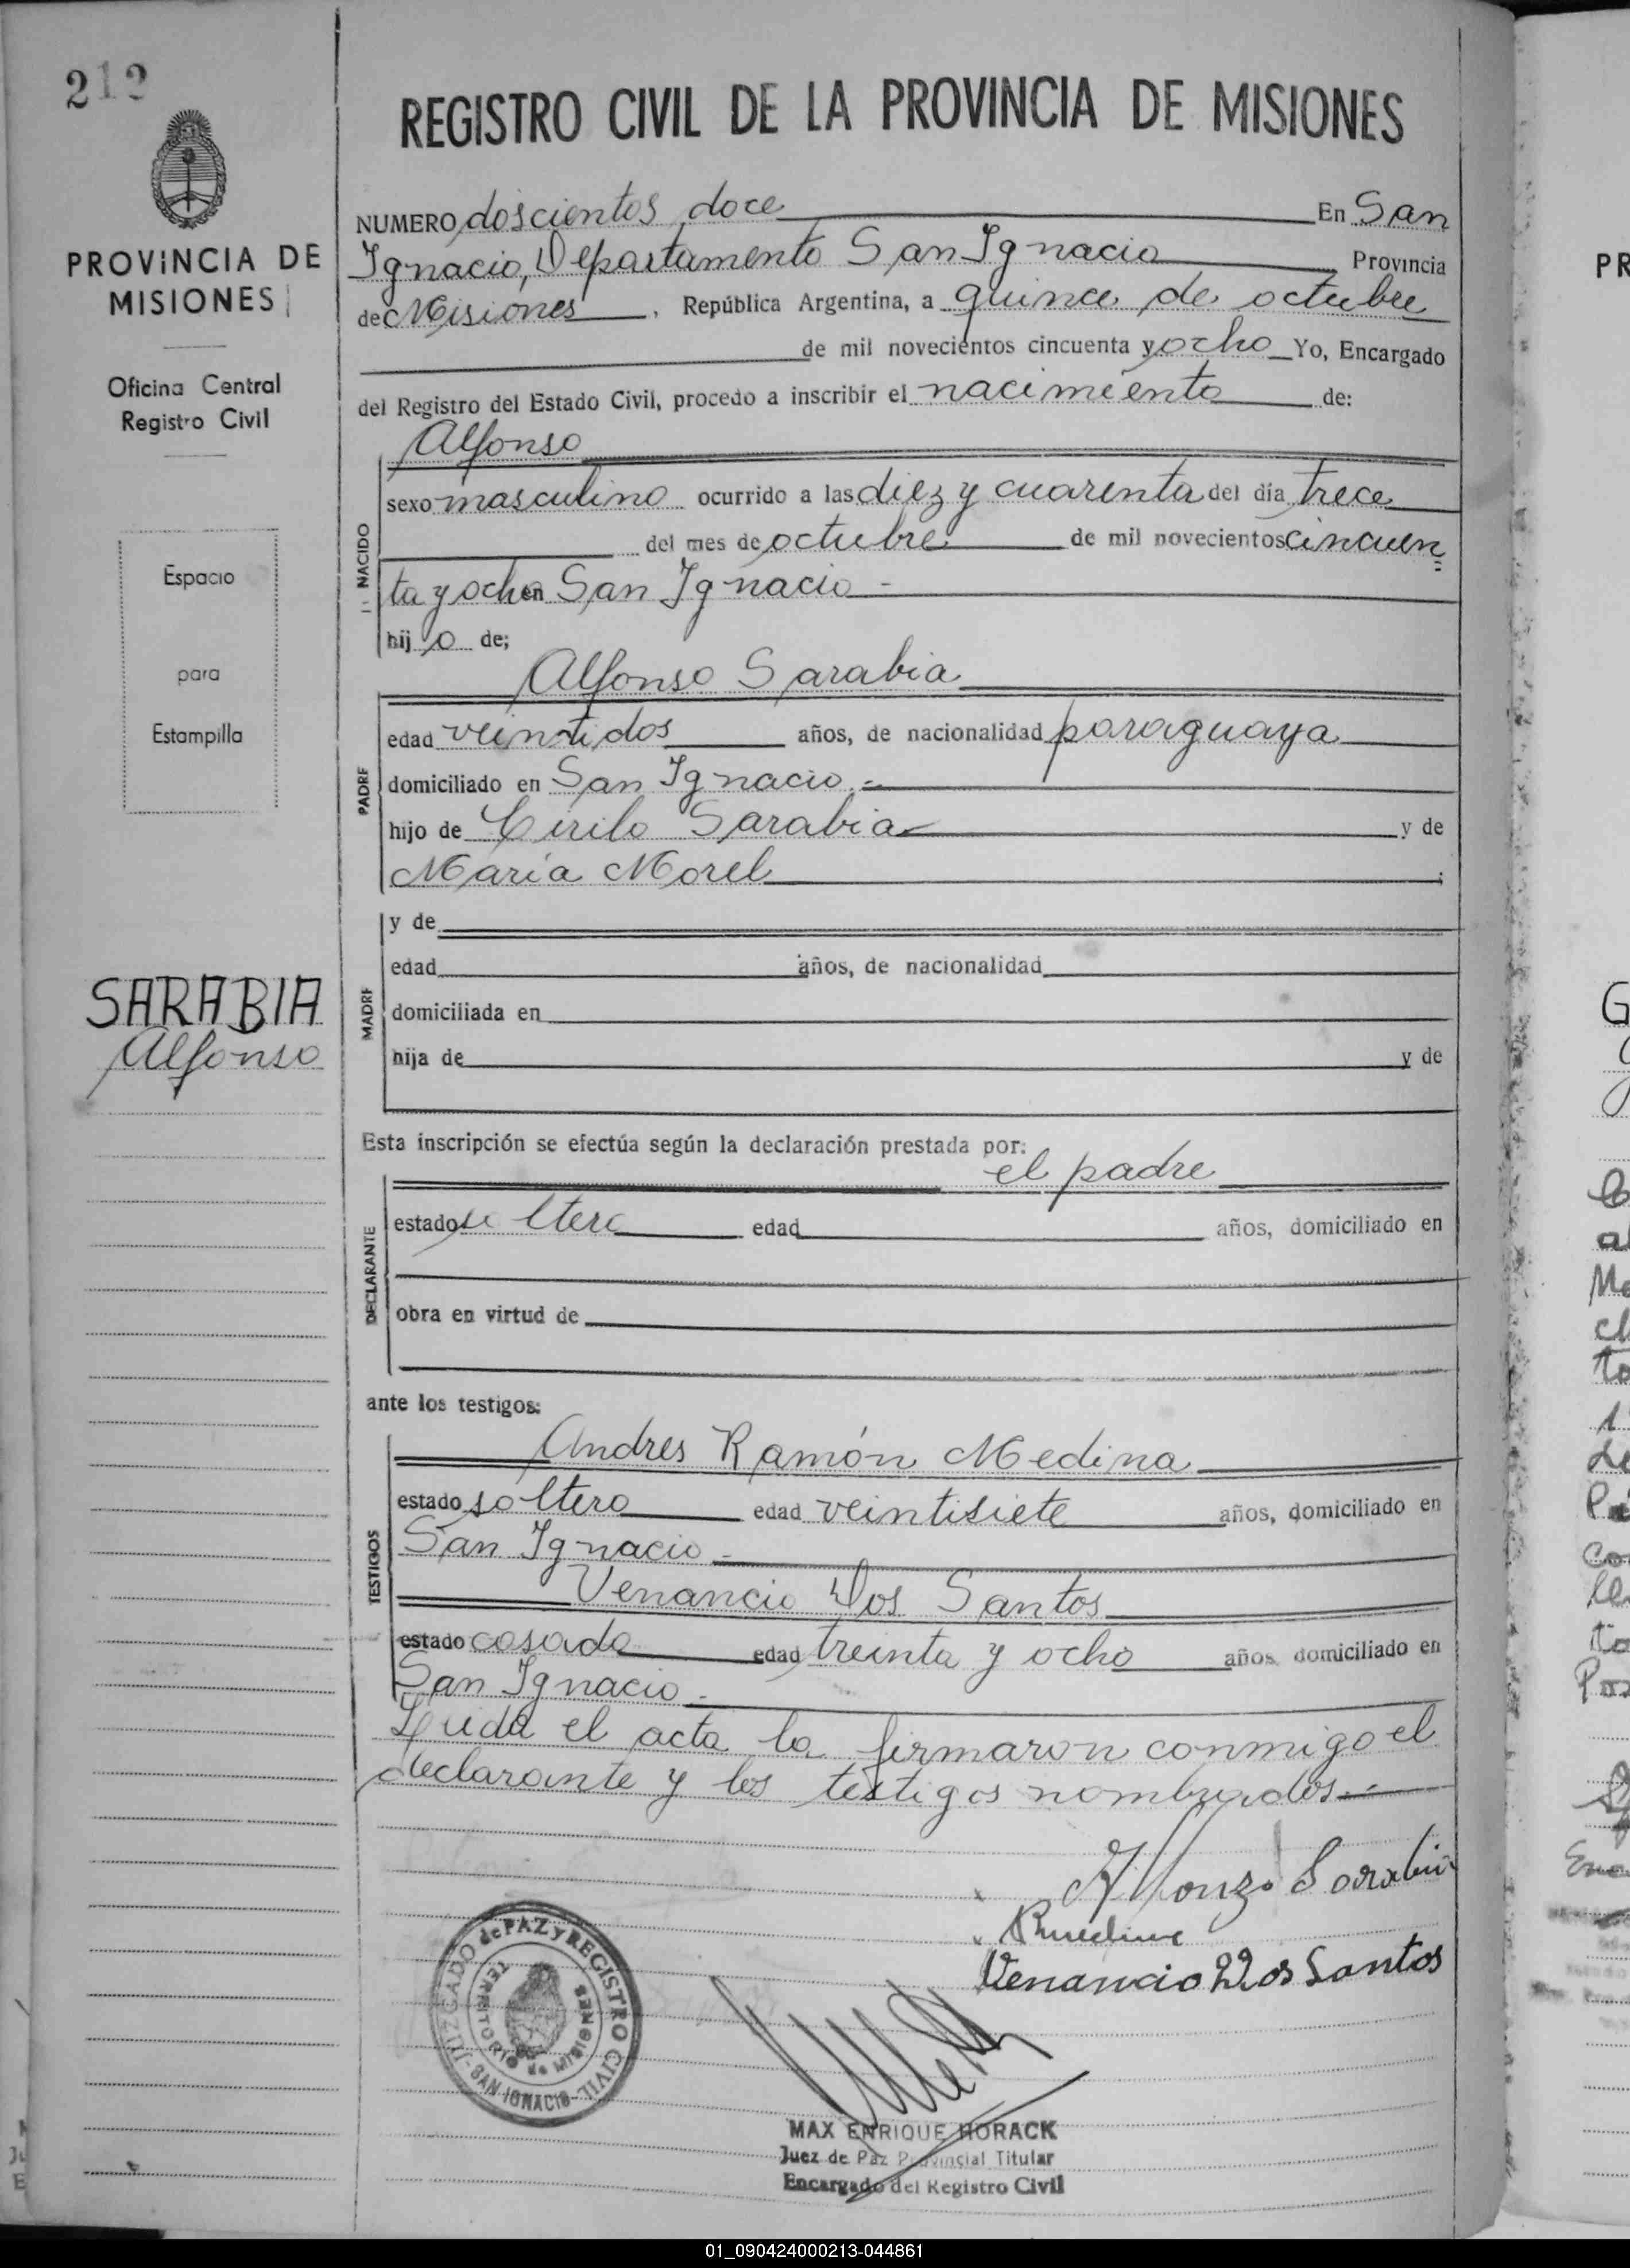 212
PROVINCIA DE
MISIONES
Oficina Central
Registro Civil
Espacio
para
Estampilla
SARABIA
Alfonso
REGISTRO CIVIL DE LA PROVINCIA DE MISIONES
NUMERO doscientos doce En San
Ignacio, Departamento San Ignacio Provincia
de Misiones, República Argentina, a quince de octubre
de mil novecientos cincuenta y ocho Yo, Encargado
del Registro del Estado Civil, procedo a inscribir el nacimiento de:
Alfonso
NACIDO
sexo masculino ocurrido a las diez y cuarenta del día trece
del mes de octubre de mil novecientos cincuen
ta y ocho en San Ignacio-
hijo de;
Alfonso Sarabia
PADRE
edad veintidos años, de nacionalidad paraguaya
domiciliado en San Ignacio.-
hijo de Cirilo Sarabia y de
María Morel;
MADRE
y de
edad años, de nacionalidad
domiciliada en
hija de y de
Esta inscripción se efectúa según la declaración prestada por:
el padre
DECLARANTE
estado soltero edad años, domiciliado en
obra en virtud de
ante los testigos:
Andres Ramón Medina
TESTIGOS
estado soltero edad veintisiete años, domiciliado en
San Ignacio-
Venancio Dos Santos
estado casado edad treinta y ocho años domiciliado en
San Ignacio.-
Leida el acta la firmaron conmigo el
declarante y los testigos nombrados.-
Alfonzo Sarabia
Venancio Dos Santos
JUZGADO de PAZ y REGISTRO CIVIL - SAN IGNACIO -
TERRITORIO de MISIONES
MAX ENRIQUE HORACK
Juez de Paz Provincial Titular
Encargado del Registro Civil
PR
01_090424000213-044861